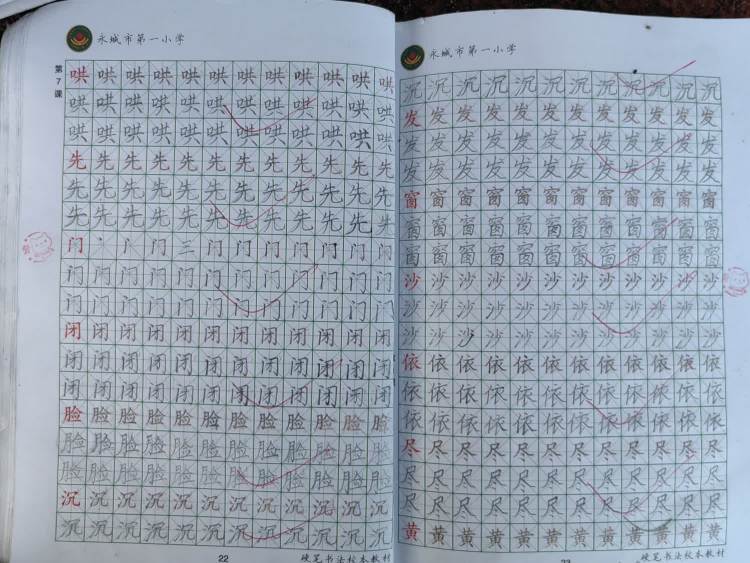 永城市第一小学
第7课
哄哄哄哄哄哄哄哄哄哄哄哄
哄哄哄哄哄哄哄哄哄哄哄哄
哄哄哄哄哄哄哄哄哄哄哄哄
先先先先先先先先先先先先
先先先先先先先先先先先先
先先先先先先先先先先先先
门丶门门三门门门门门门门
门门门门门门门门门门门门
门门门门门门门门门门门门
闭闭闭闭闭闭闭闭闭闭闭闭
闭闭闭闭闭闭闭闭闭闭闭闭
闭闭闭闭闭闭闭闭闭闭闭闭
脸脸脸脸脸脸脸脸脸脸脸脸
脸脸脸脸脸脸脸脸脸脸脸脸
脸脸脸脸脸脸脸脸脸脸脸脸
沉沉沉沉沉沉沉沉沉沉沉沉
沉沉沉沉沉沉沉沉沉沉沉沉
22 硬笔书法校本教材
永城市第一小学
沉沉沉沉沉沉沉沉沉沉沉沉
发发发发发发发发发发发发
发发发发发发发发发发发发
发发发发发发发发发发发发
窗窗窗窗窗窗窗窗窗窗窗窗
窗窗窗窗窗窗窗窗窗窗窗窗
窗窗窗窗窗窗窗窗窗窗窗窗
沙沙沙沙沙沙沙沙沙沙沙沙
沙沙沙沙沙沙沙沙沙沙沙沙
沙沙沙沙沙沙沙沙沙沙沙沙
依依依依依依依依依依依依
依依依依依依依依依依依依
依依依依依依依依依依依依
尽尽尽尽尽尽尽尽尽尽尽尽
尽尽尽尽尽尽尽尽尽尽尽尽
尽尽尽尽尽尽尽尽尽尽尽尽
黄黄黄黄黄黄黄黄黄黄黄黄
23 硬笔书法校本教材